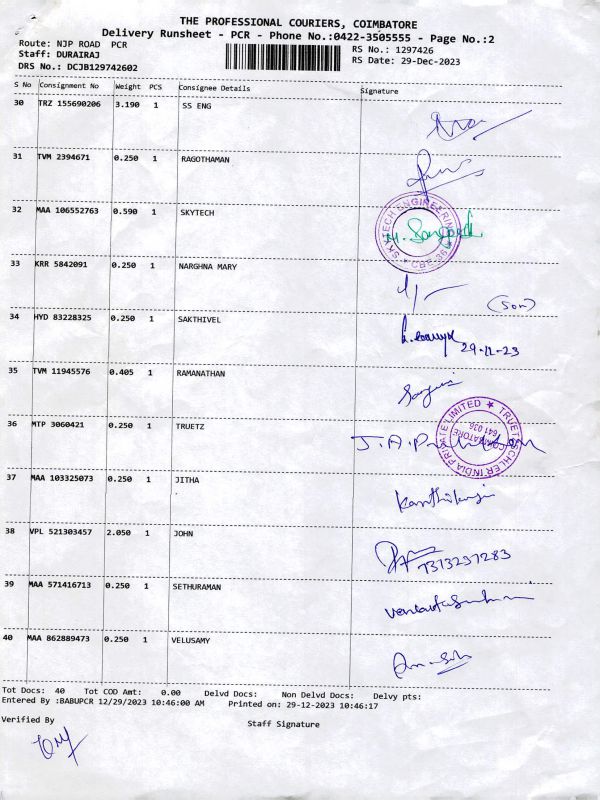 THE PROFESSIONAL COURIERS, COIMBATORE
Delivery Runsheet - PCR - Phone No.:0422-3505555 - Page No.:2
Route: NJP ROAD PCR RS No.: 1297426
Staff: DURAIRAJ RS Date: 29-Dec-2023
DRS No.: DCJB129742602
S No Consignment No Weight PCS Consignee Details Signature
30 TRZ 155690206 3.190 1 SS ENG
31 TVM 2394671 0.250 1 RAGOTHAMAN
32 MAA 106552763 0.590 1 SKYTECH
SKYTECH ENGINEERING
33 KRR 5842091 0.250 1 NARGHNA MARY
(Son)
34 HYD 83228325 0.250 1 SAKTHIVEL
29-12-23
35 TVM 11945576 0.405 1 RAMANATHAN
36 MTP 3060421 0.250 1 TRUETZ
TRUETZSCHLER INDIA PRIVATE LIMITED ★
COIMBATORE
641 036
37 MAA 103325073 0.250 1 JITHA
38 VPL 521303457 2.050 1 JOHN
7373237283
39 MAA 571416713 0.250 1 SETHURAMAN
40 MAA 862889473 0.250 1 VELUSAMY
Tot Docs: 40 Tot COD Amt: 0.00 Delvd Docs: Non Delvd Docs: Delvy pts:
Entered By :BABUPCR 12/29/2023 10:46:00 AM Printed on: 29-12-2023 10:46:17
Verified By Staff Signature